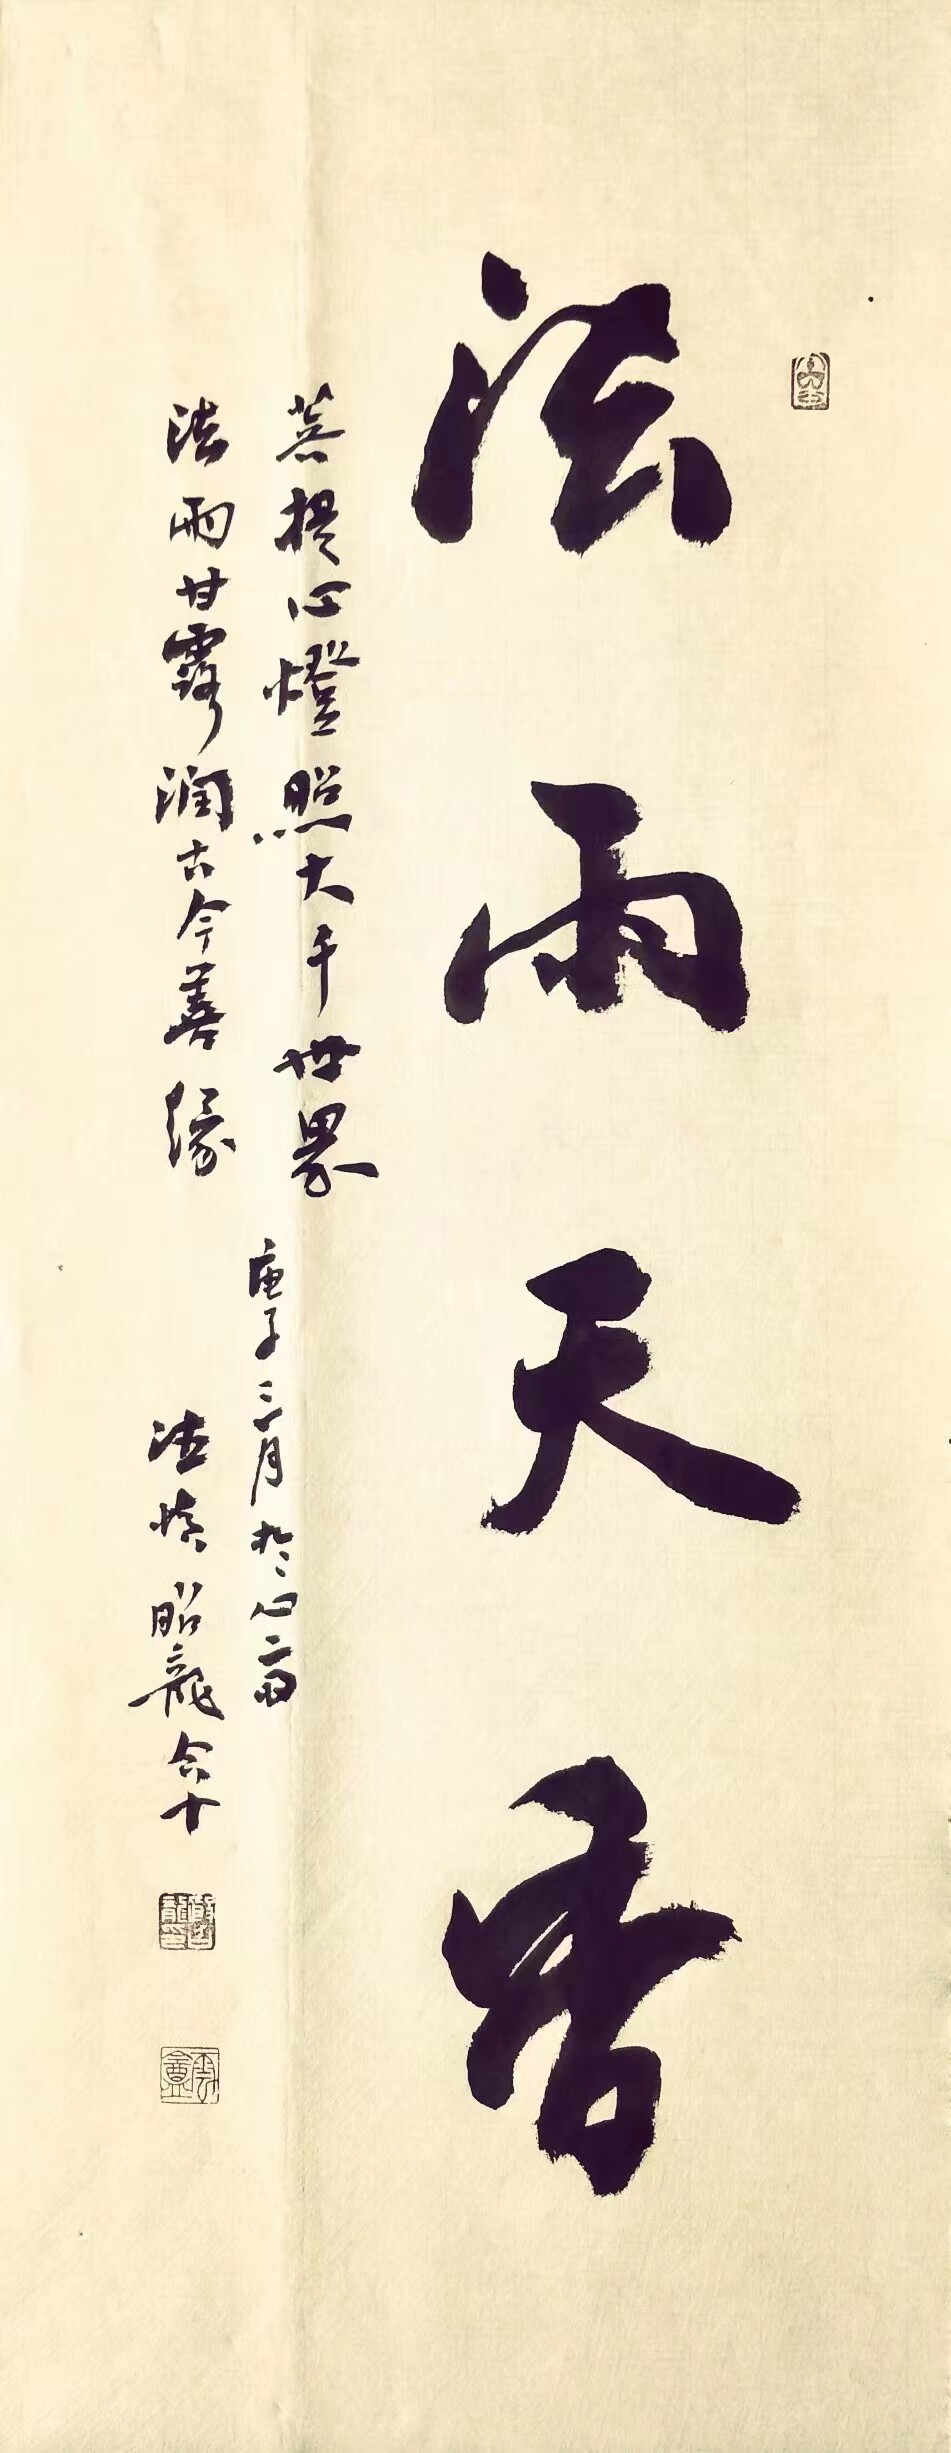 法雨天香
菩提心燈照大千世界
法雨甘露潤古今善緣
庚子三月於心齋
法慎昭龍合十